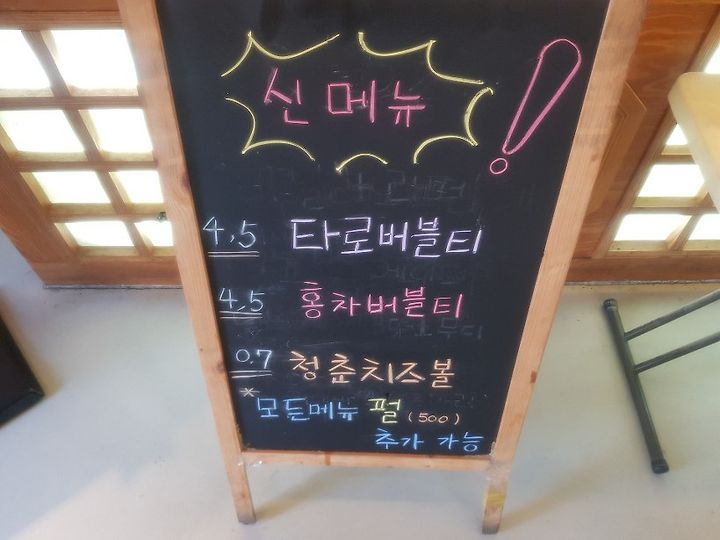 신메뉴!
4,5 타로버블티
4,5 홍차버블티
0.7 청춘치즈볼
* 모든메뉴 펄 (500)
추가 가능